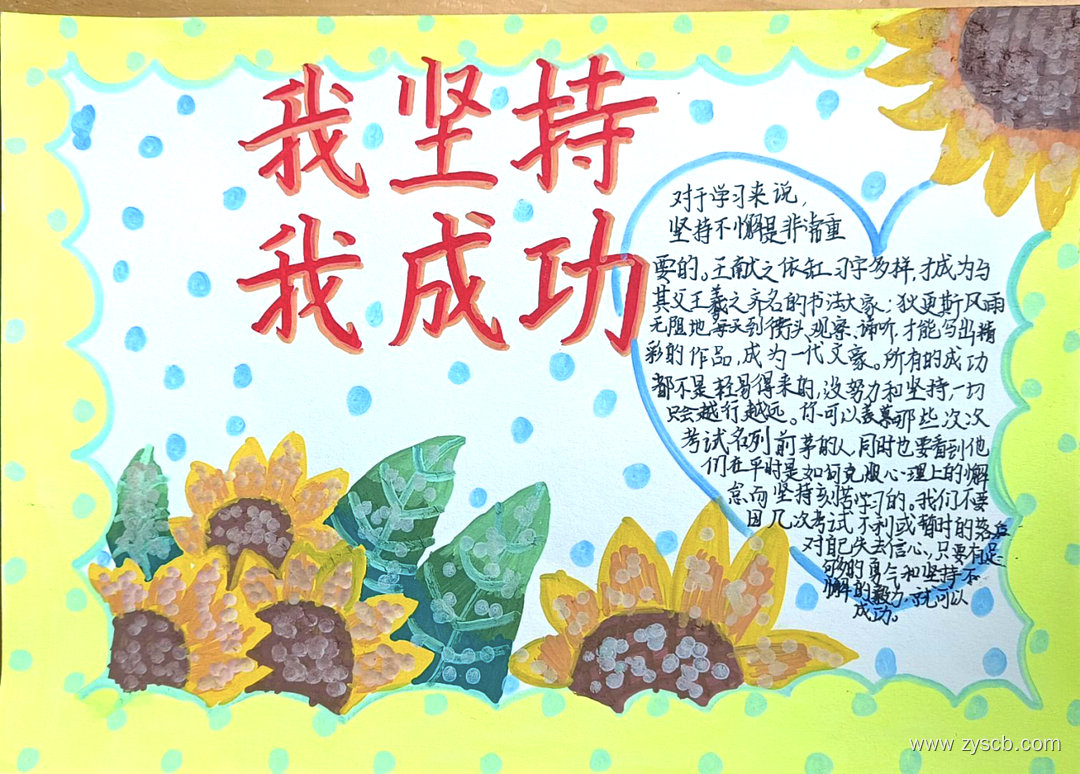 我坚持
我成功
对于学习来说，
坚持不懈是非常重
要的。王献之依缸习字多样，才成为与
其父王羲之齐名的书法大家；狄更斯风雨
无阻地每天到街头观察、谛听，才能写出精
彩的作品，成为一代文豪。所有的成功
都不是轻易得来的，没努力和坚持，一切
只会越行越远。你可以羡慕那些次次
考试名列前茅的人，同时也要看到他
们在平时是如何克服心理上的懈
怠而坚持刻苦学习的。我们不要
因几次考试不利或暂时的落后
对自己失去信心，只要有足
够的勇气和坚持不
懈的毅力，就可以
成功。
www.zyscb.com